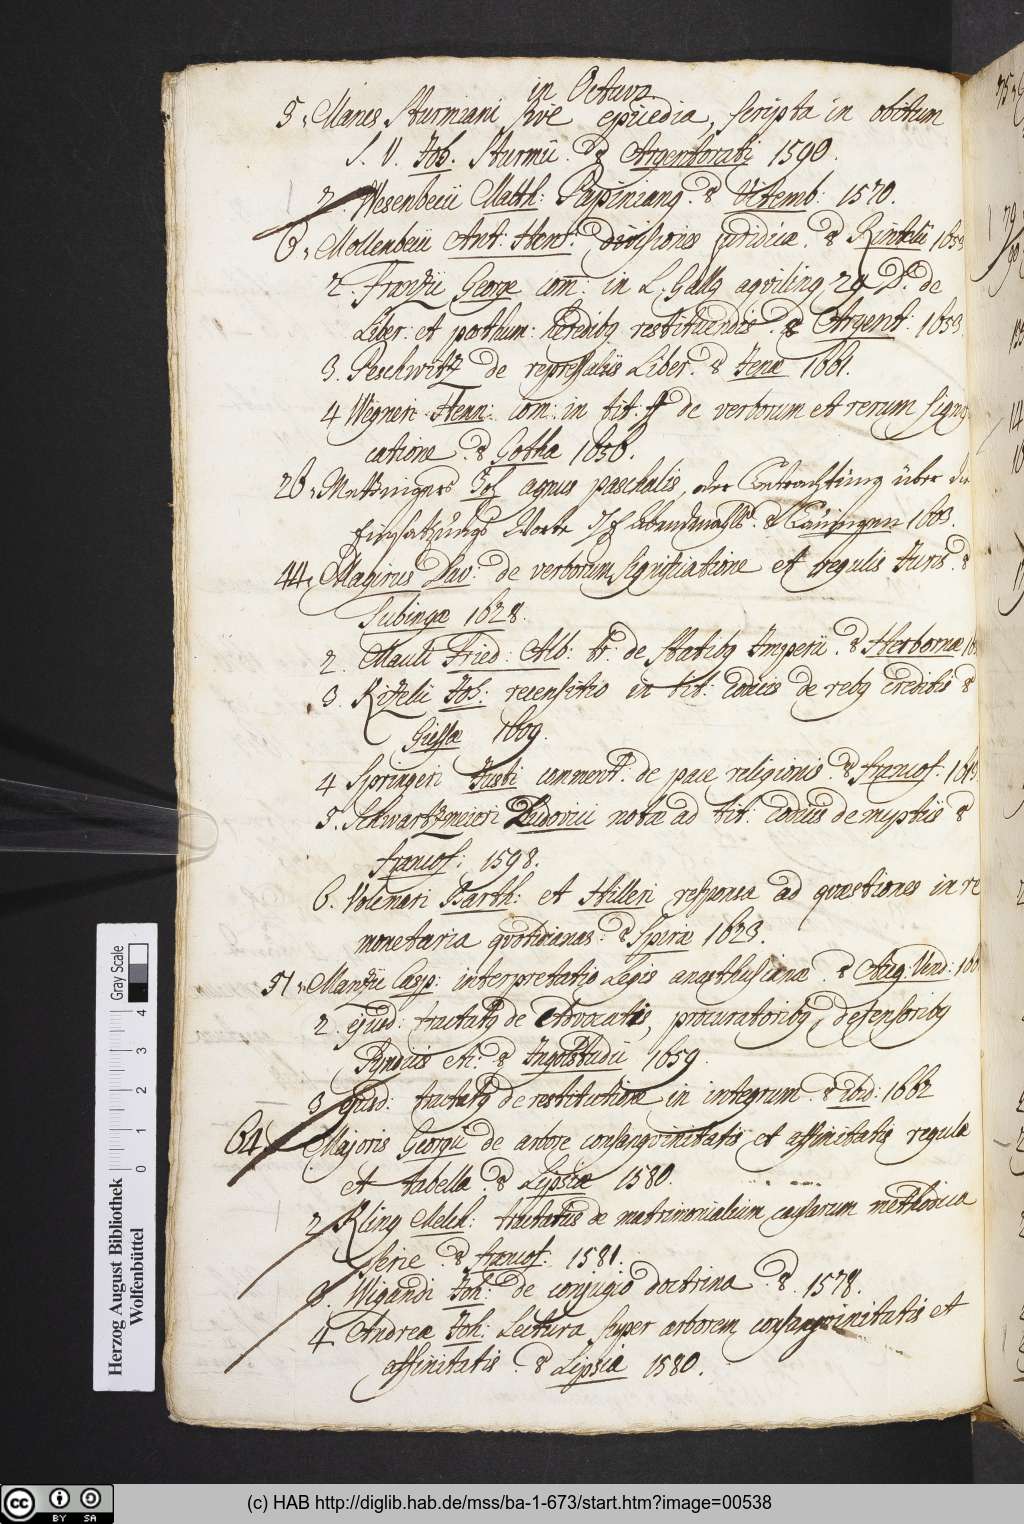 in Octavo
5. Manes Sturmiani sive epicedia, scripta in obitum
S. V. Joh. Sturmii. 8 Argentorati 1590.
2. Wesenbecii Matth: Papinianq. 8 Vitemb: 1570.
6. Mollenbecii Ant: Henr: divisiones juridicæ. 8 Rintelii
2. Frantzii George com: in L. Gallq aqviling 29 D. de
Liber: et posthum: heredibq restituendis. 8 Argent:
3. Peschwitz de repressaliis Liber. 8 Jenæ 1661.
4 Wegneri Henn: com: in tit: ff de verborum et rerum signifi
catione 8 Gotha 1656.
26. Johan agnus paschalis, oder Betrachtung über die
Einsatzungs Worte Abendmahls. 8 1603.
44. Magirus Dav: de verborum significatione et regulis Juris. 8
Tubingæ 1628.
2. Mauli Fried: Alb: tr: de statibq Imperii. 8 Herbornæ
3. Ritzelii Joh: recensitio in tit: codicis de rebq creditis 8
Giessæ 1609.
4 Springeri Justi comment: de pace religionis. 8 francof:
5. Schwartzmeieri Ludovici notæ ad tit: codicis de nuptiis 8
francof: 1598.
6. Volcmari Barth: et Hilleri responsa ad quæstiones in re
monetaria qvotidianas. 8 Spiræ 1623.
51. Mantzii Casp: interpretatio Legis anasthasianæ. 8 Aug: Vind:
2. ejusd: tractatq de Advocatis, procuratoribq, defensoribq
Syndicis etc. 8 Ingolstadii 1659.
3 ejusd: tractatq de restitutione in integrum. 8 ibid: 1662
64. Majoris Georgii de arbore consangvinitatis et affinitatis regulæ
et tabellæ. 8 Lipsiæ 1580.
2 Kling Melch: tractatus de matrimonialium causarum methodica
serie. 8 francof: 1581.
3. Wigandi Joh: de conjugio doctrina. 8. 1578.
4. Andreæ Joh: Lectura super arborem consangvinitatis et
affinitatis. 8 Lipsiæ 1580.
Gray Scale
4
3
2
1
0
Herzog August Bibliothek
Wolfenbüttel
(c) HAB http://diglib.hab.de/mss/ba-1-673/start.htm?image=00538
cc
BY SA